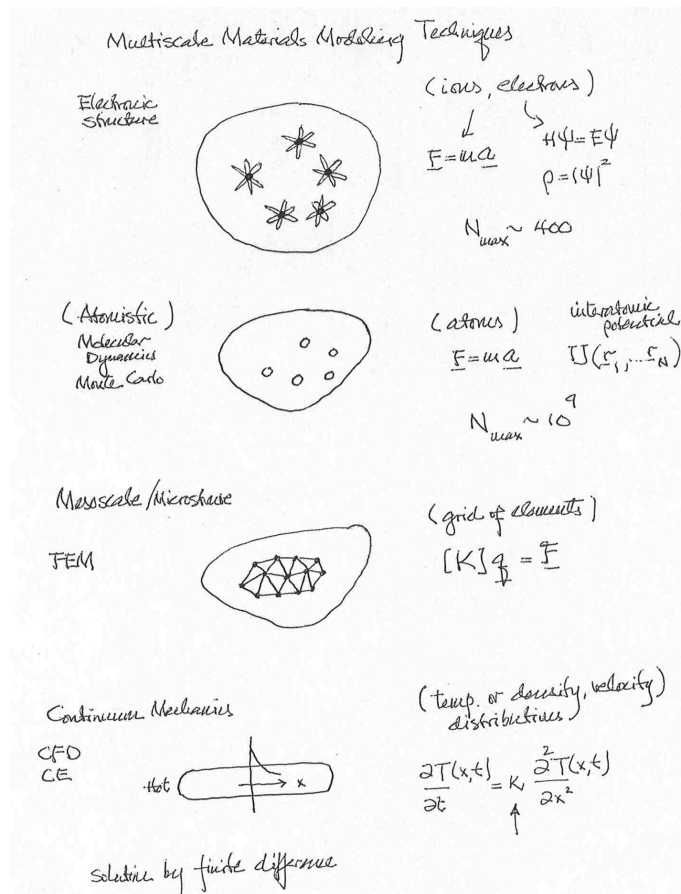 Multiscale Materials Modeling Techniques
Electronic
Structure
(ions, electrons)
F = ma
Hψ = Eψ
ρ = |ψ|²
N_max ~ 400
(Atomistic)
Molecular
Dynamics
Monte Carlo
(atoms)
interatomic
potential
F = ma
U(r₁, ... r_N)
N_max ~ 10⁹
Mesoscale/Microstructure
FEM
(grid of elements)
[K] q = F
Continuum Mechanics
CFD
CE
Hot
x
(temp. or density, velocity)
distributions
∂T(x,t)/∂t = K ∂²T(x,t)/∂x²
Solution by finite difference